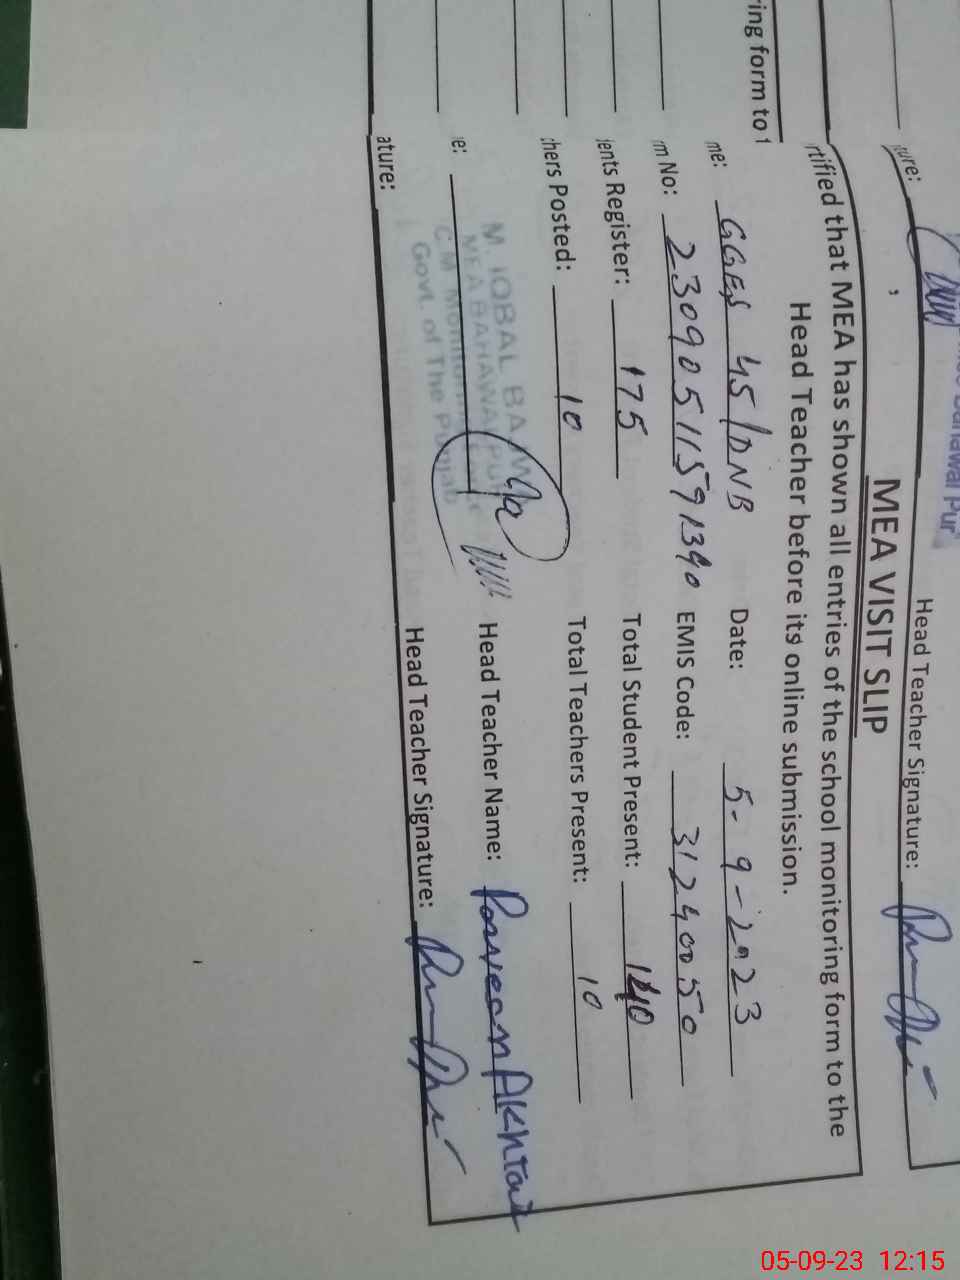 ring form to t
ure:
Head Teacher Signature:
Bahawal Pur
MEA VISIT SLIP
rtified that MEA has shown all entries of the school monitoring form to the
Head Teacher before its online submission.
me: GGES 45/DNB Date: 5-9-2023
m No: 23090511591390 EMIS Code: 31240050
ents Register: 175 Total Student Present: 140
hers Posted: 10 Total Teachers Present: 10
e: Head Teacher Name: Parveen Akhtar
ature: Head Teacher Signature:
M. IQBAL
MEA BAHAWALPUR
C.M Monitoring
Govt. of The Punjab
05-09-23 12:15